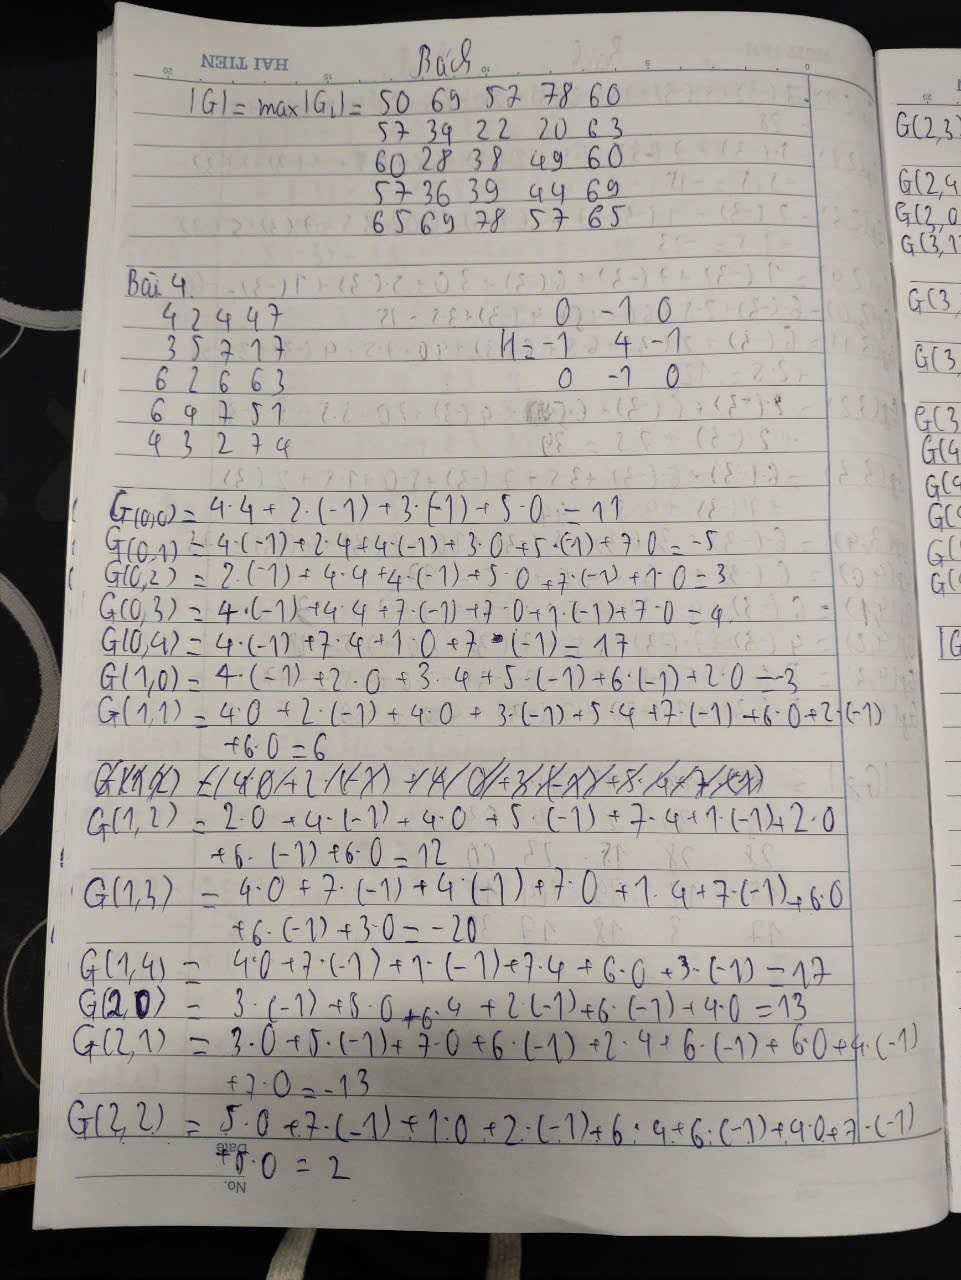 HAI TIEN
Bách
|G| = max|Gi| = 50 69 57 78 60
57 39 22 20 63
60 28 38 49 60
57 36 39 44 69
65 69 78 57 65
Bài 4.
4 2 4 4 7
3 5 7 1 7
6 2 6 6 3
6 4 7 5 1
4 3 2 7 4
0 -1 0
H = -1 4 -1
0 -1 0
G(0,0) = 4·4 + 2·(-1) + 3·(-1) + 5·0 = 11
G(0,1) = 4·(-1) + 2·4 + 4·(-1) + 3·0 + 5·(-1) + 7·0 = -5
G(0,2) = 2·(-1) + 4·4 + 4·(-1) + 5·0 + 7·(-1) + 1·0 = 3
G(0,3) = 4·(-1) + 4·4 + 7·(-1) + 7·0 + 1·(-1) + 7·0 = 4
G(0,4) = 4·(-1) + 7·4 + 1·0 + 7·(-1) = 17
G(1,0) = 4·(-1) + 2·0 + 3·4 + 5·(-1) + 6·(-1) + 2·0 = -3
G(1,1) = 4·0 + 2·(-1) + 4·0 + 3·(-1) + 5·4 + 7·(-1) + 6·0 + 2·(-1)
+ 6·0 = 6
G(1,2) = 2·0 + 4·(-1) + 4·0 + 5·(-1) + 7·4 + 1·(-1) + 2·0
+ 6·(-1) + 6·0 = 12
G(1,3) = 4·0 + 7·(-1) + 4·(-1) + 7·0 + 1·4 + 7·(-1) + 6·0
+ 6·(-1) + 3·0 = -20
G(1,4) = 4·0 + 7·(-1) + 1·(-1) + 7·4 + 6·0 + 3·(-1) = 17
G(2,0) = 3·(-1) + 5·0 + 6·4 + 2·(-1) + 6·(-1) + 4·0 = 13
G(2,1) = 3·0 + 5·(-1) + 7·0 + 6·(-1) + 2·4 + 6·(-1) + 6·0 + 4·(-1)
+ 7·0 = -13
G(2,2) = 5·0 + 7·(-1) + 1·0 + 2·(-1) + 6·4 + 6·(-1) + 4·0 + 7·(-1)
+ 5·0 = 2
Date
No.
G(2,3)
G(2,4
G(2,0
G(3,1
G(3,
G(3,
G(3
G(4